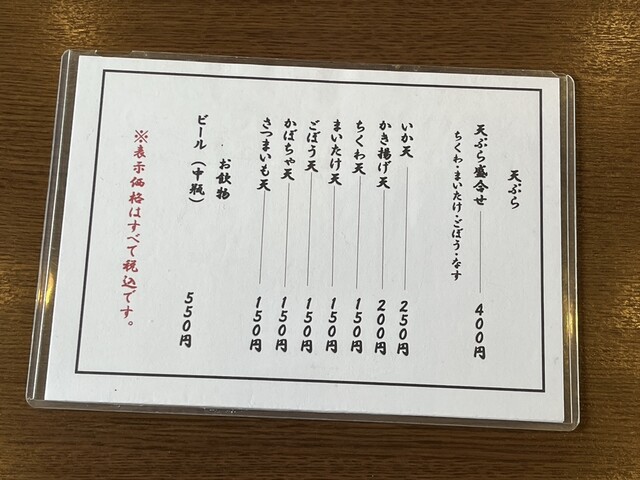 天ぷら
天ぷら盛合せ 400円
ちくわ・まいたけ・ごぼう・なす
いか天 250円
かき揚げ天 200円
ちくわ天 150円
まいたけ天 150円
ごぼう天 150円
かぼちゃ天 150円
さつまいも天 150円
お飲物
ビール（中瓶） 550円
※表示価格はすべて税込です。